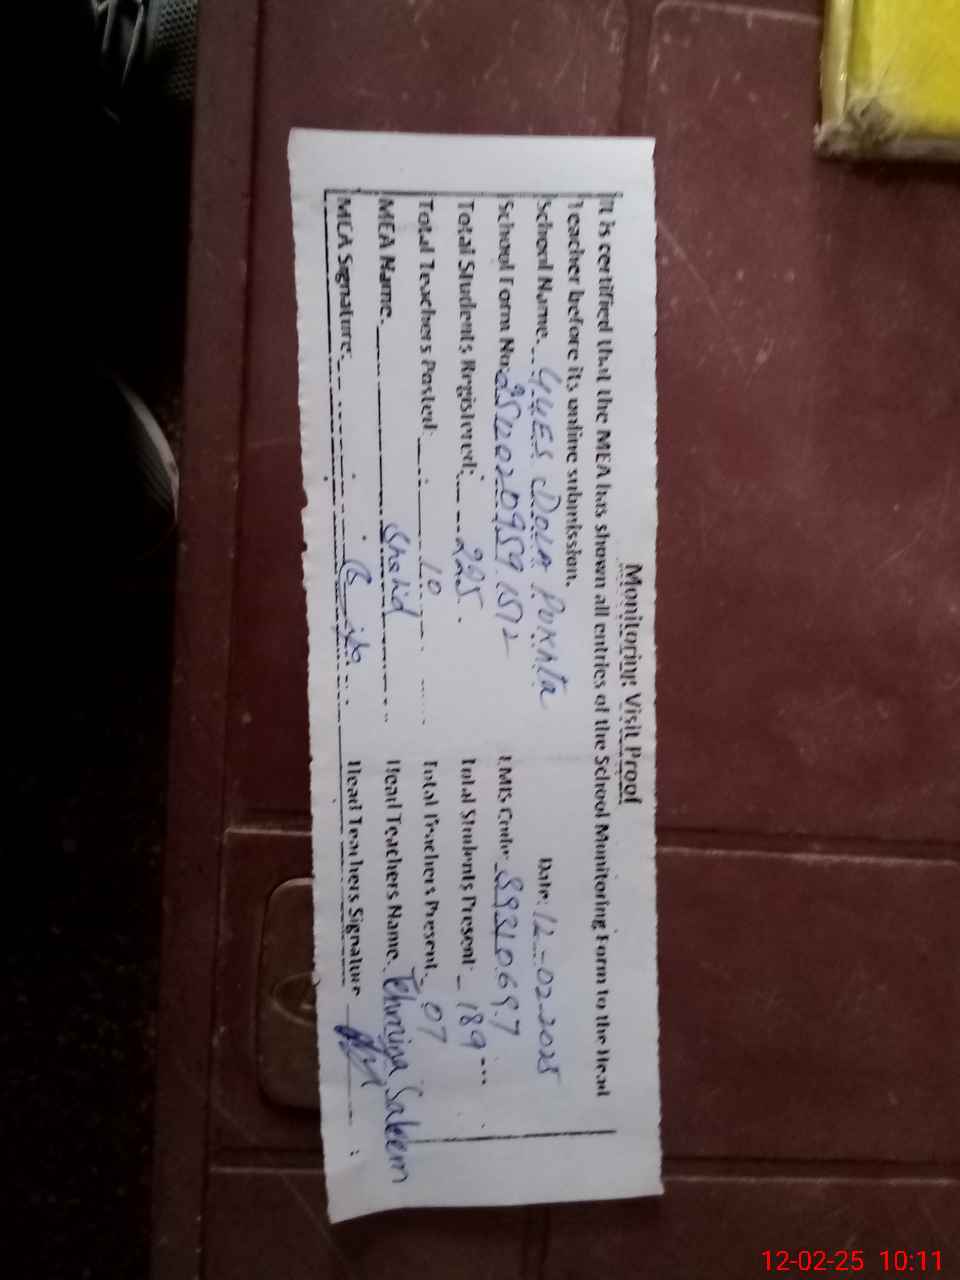 Monitoring Visit Proof
It is certified that the MEA has shown all entries of the School Monitoring Form to the Head
Teacher before its online submission.
School Name. GGES Dola Pokhta Date: 12-02-2025
School Form No: 25020959.1512 EMIS Code: 39310697
Total Students Registered: 225. Total Students Present: 189
Total Teachers Posted: 10 Total Teachers Present: 07
MEA Name. Shahid Head Teachers Name. Tehmina Saleem
MEA Signature. Head Teachers Signature
12-02-25 10:11